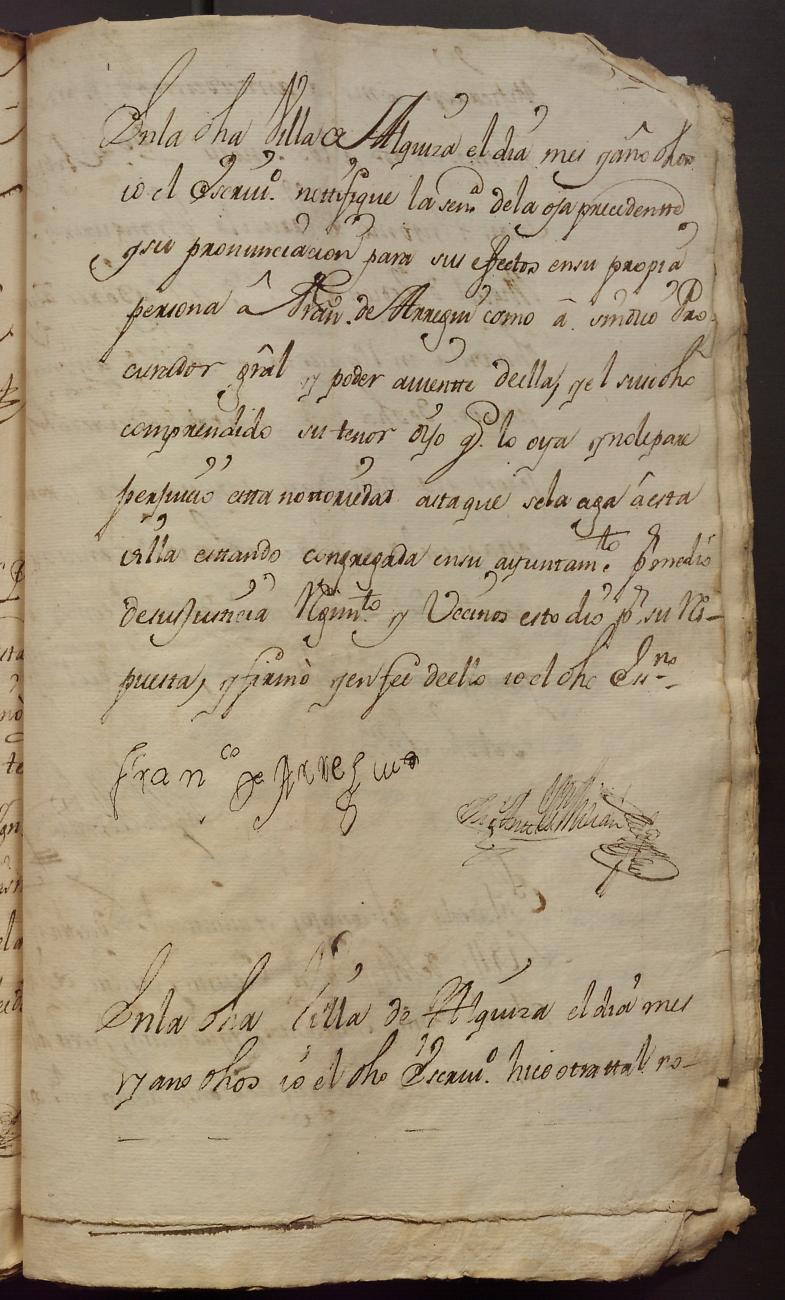 Enla dha Villa de Alquiza el dia mes y año dhos
io el Escriu.º nottifique la sen.ª dela oja precedentte
y su pronunciacion para sus efectos ensu propia
persona â Fran.co de Arregui como â sindico Pro-
curador grâl y poder auientte de ella, y el suso dho
comprendido su tenor dijo q.e lo oya y no le pare
perjuicio esta nottoriedad asta que sela aga â esta
villa estando congregada ensu ayuntam.to por medio
de su Justicia Regim.to y Vecinos esto dio p.r su Res-
puesta, y firmò y en fee de ello io el dho Ess.no
Fran.co de Arregui
Enla dha Villa de Alquiza el dia mes
y año dhos io el dho Escriu.º hice otra tal no-